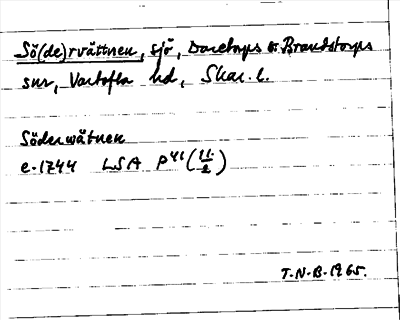 Sö(de)rvättnen, sjö, Daretorps o. Brandstorps
snr, Vartofta hd, Skar. l.
Söderwätnen
e. 1744 LSA P41 (11/2)
T.N.B. 1965.